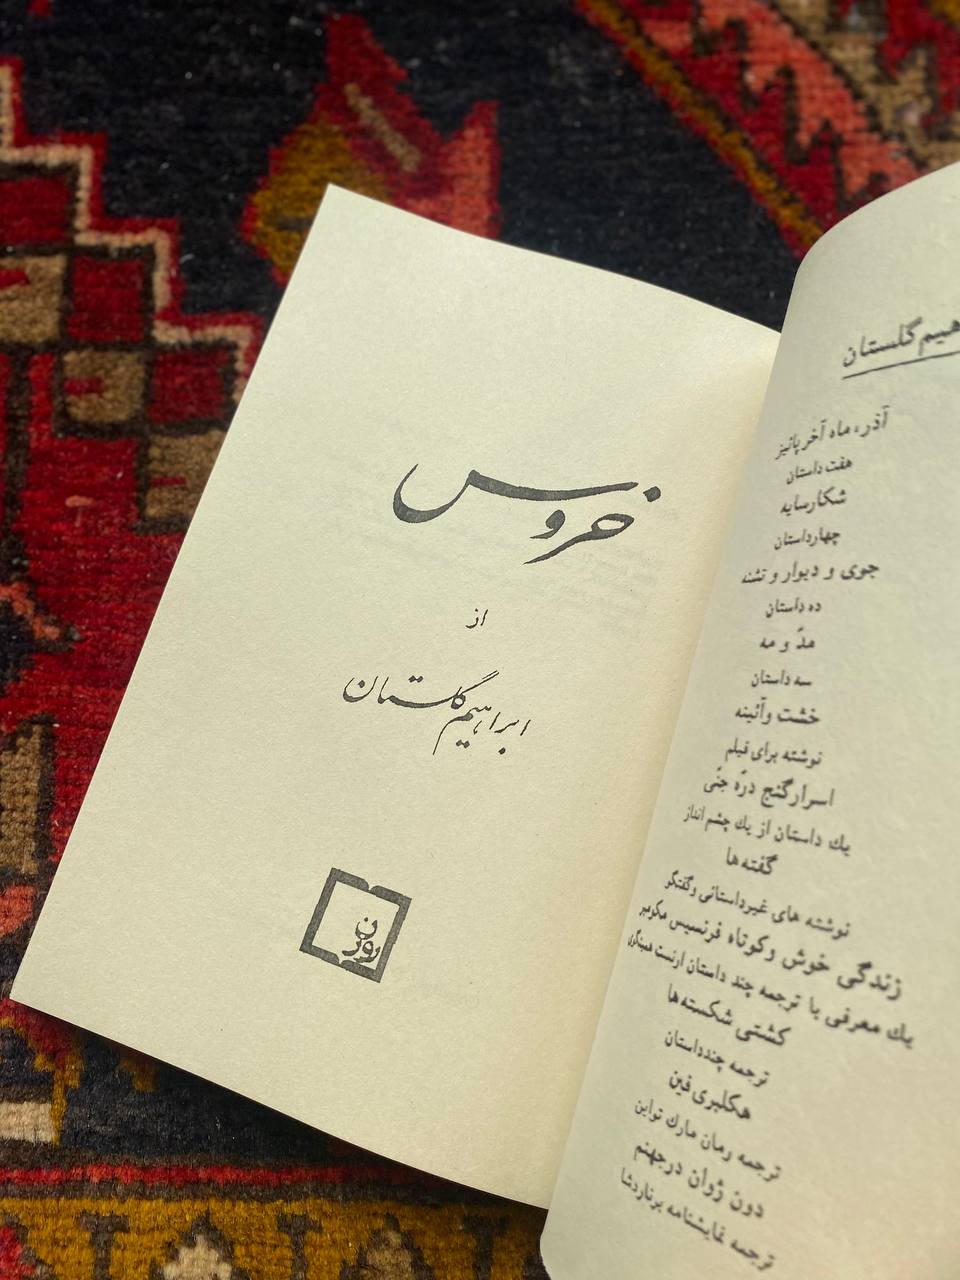 خروس
از
ابراهیم گلستان
روزن
هیم گلستان
آذر، ماه آخر پائیز
هفت داستان
شکار سایه
چهار داستان
جوی و دیوار و تشنه
ده داستان
مدّ و مه
سه داستان
خشت و آئینه
نوشته برای فیلم
اسرار گنج درّه جنّی
یك داستان از یك چشم انداز
گفته‌ها
نوشته های غیرداستانی و گفتگو
زندگی خوش و کوتاه فرنسیس مکومبر
یك معرفی با ترجمه چند داستان ارنست همینگوی
کشتی شکسته‌ها
ترجمه چند داستان
هکلبری فین
ترجمه رمان مارك تواین
دون ژوان در جهنم
ترجمه نمایشنامه برنارد شا